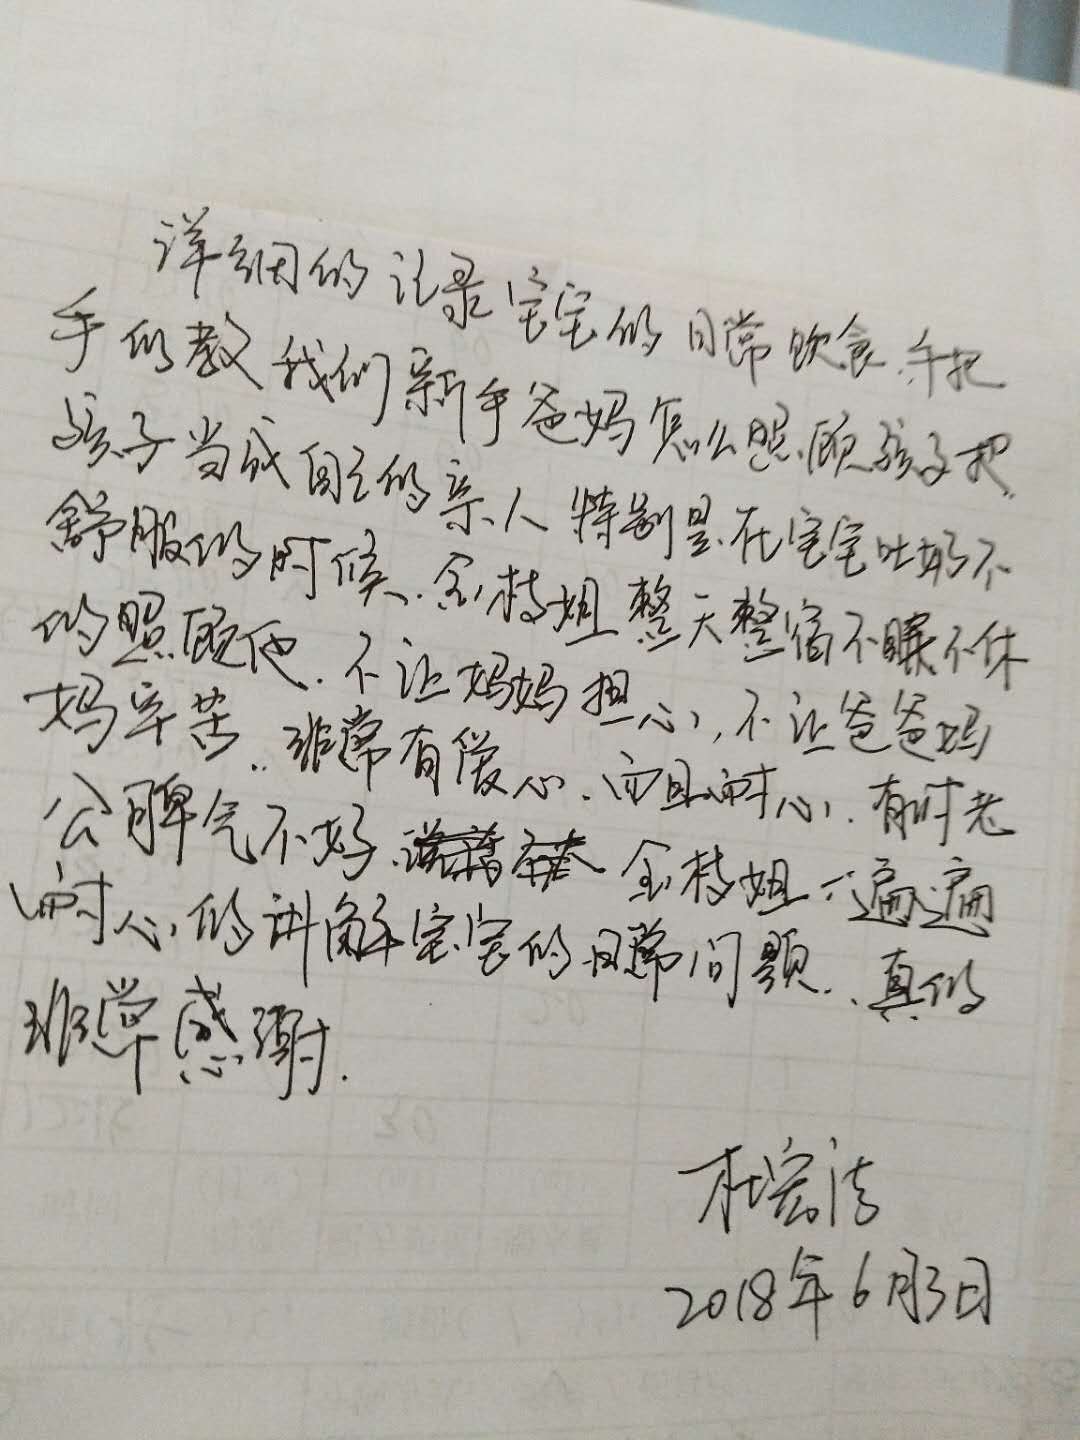 详细的记录宝宝的日常饮食、手把
手的教我们新手爸妈怎么照顾孩子把
孩子当成自己的亲人特别是在宝宝吐奶不
舒服的时候、金枝姐整天整宿不眠不休
的照顾他、不让妈妈担心,不让爸爸妈
妈辛苦..非常有爱心、而且耐心、有时老
公脾气不好、金枝姐一遍遍
耐心的讲解宝宝的日常问题..真的
非常感谢.
杜宏
2018年6月3日